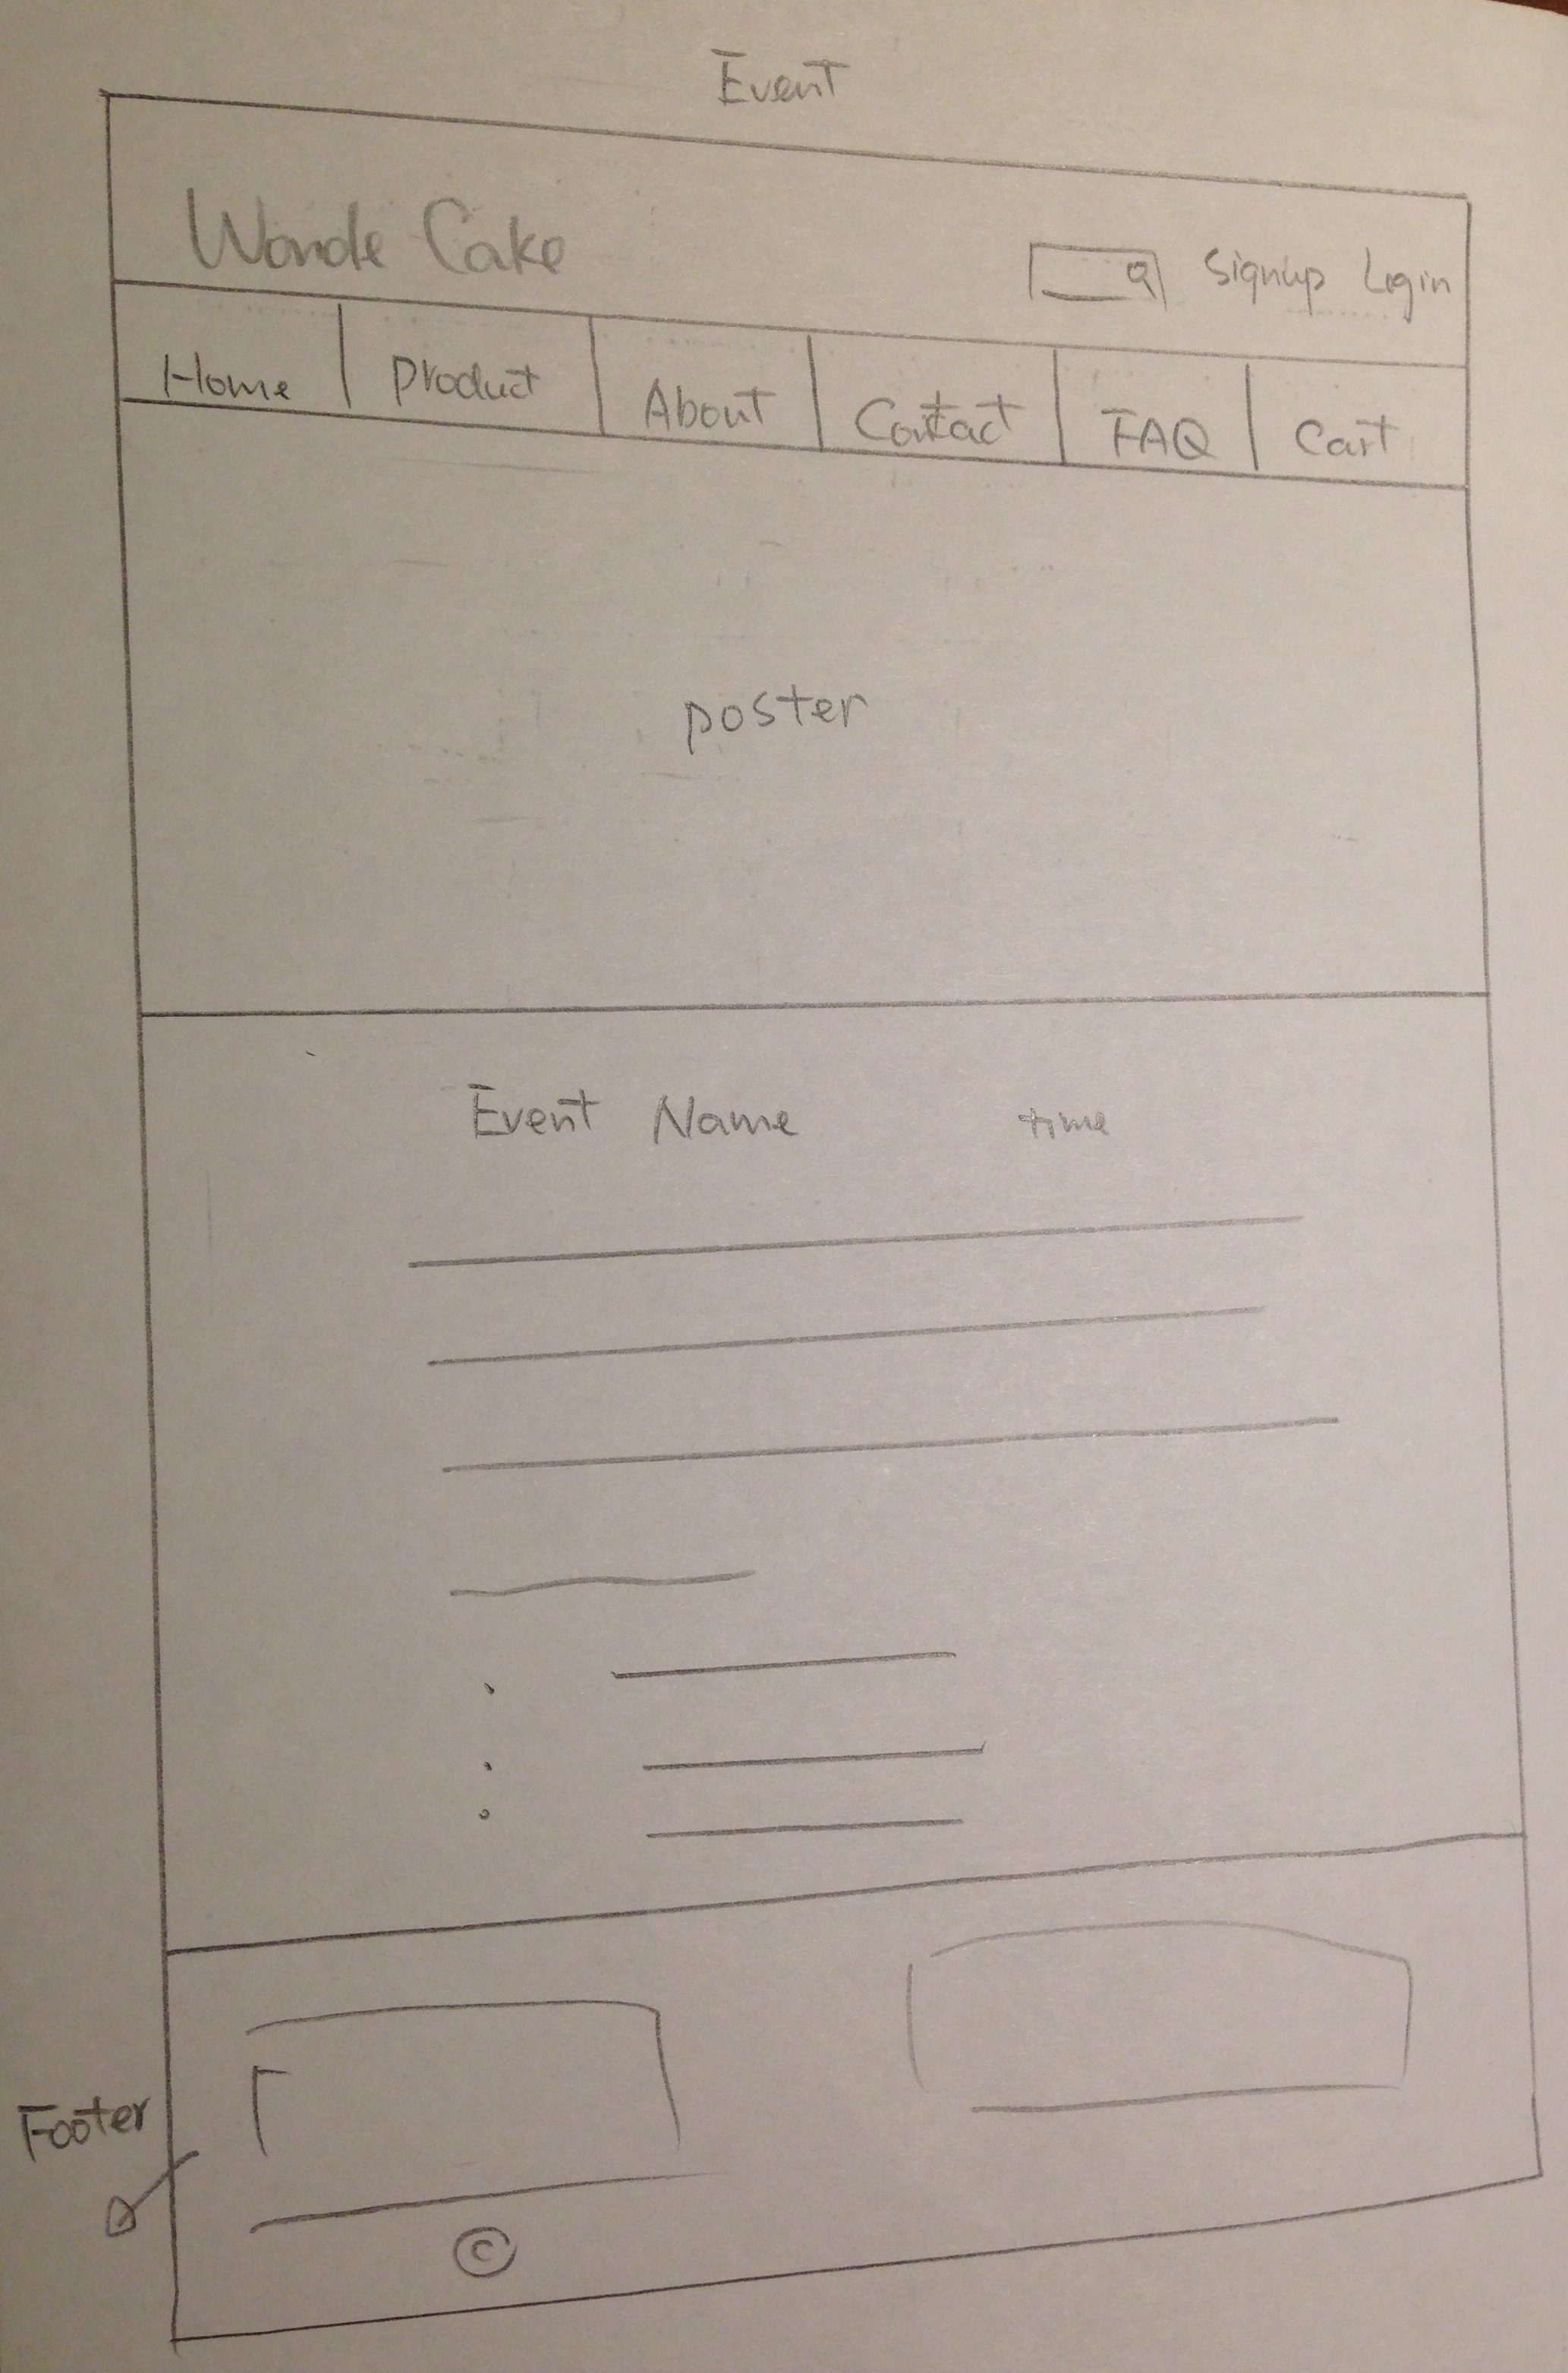 Event
Wonde Cake
Signup Login
Home Product About Contact FAQ Cart
poster
Event Name time
Footer
©